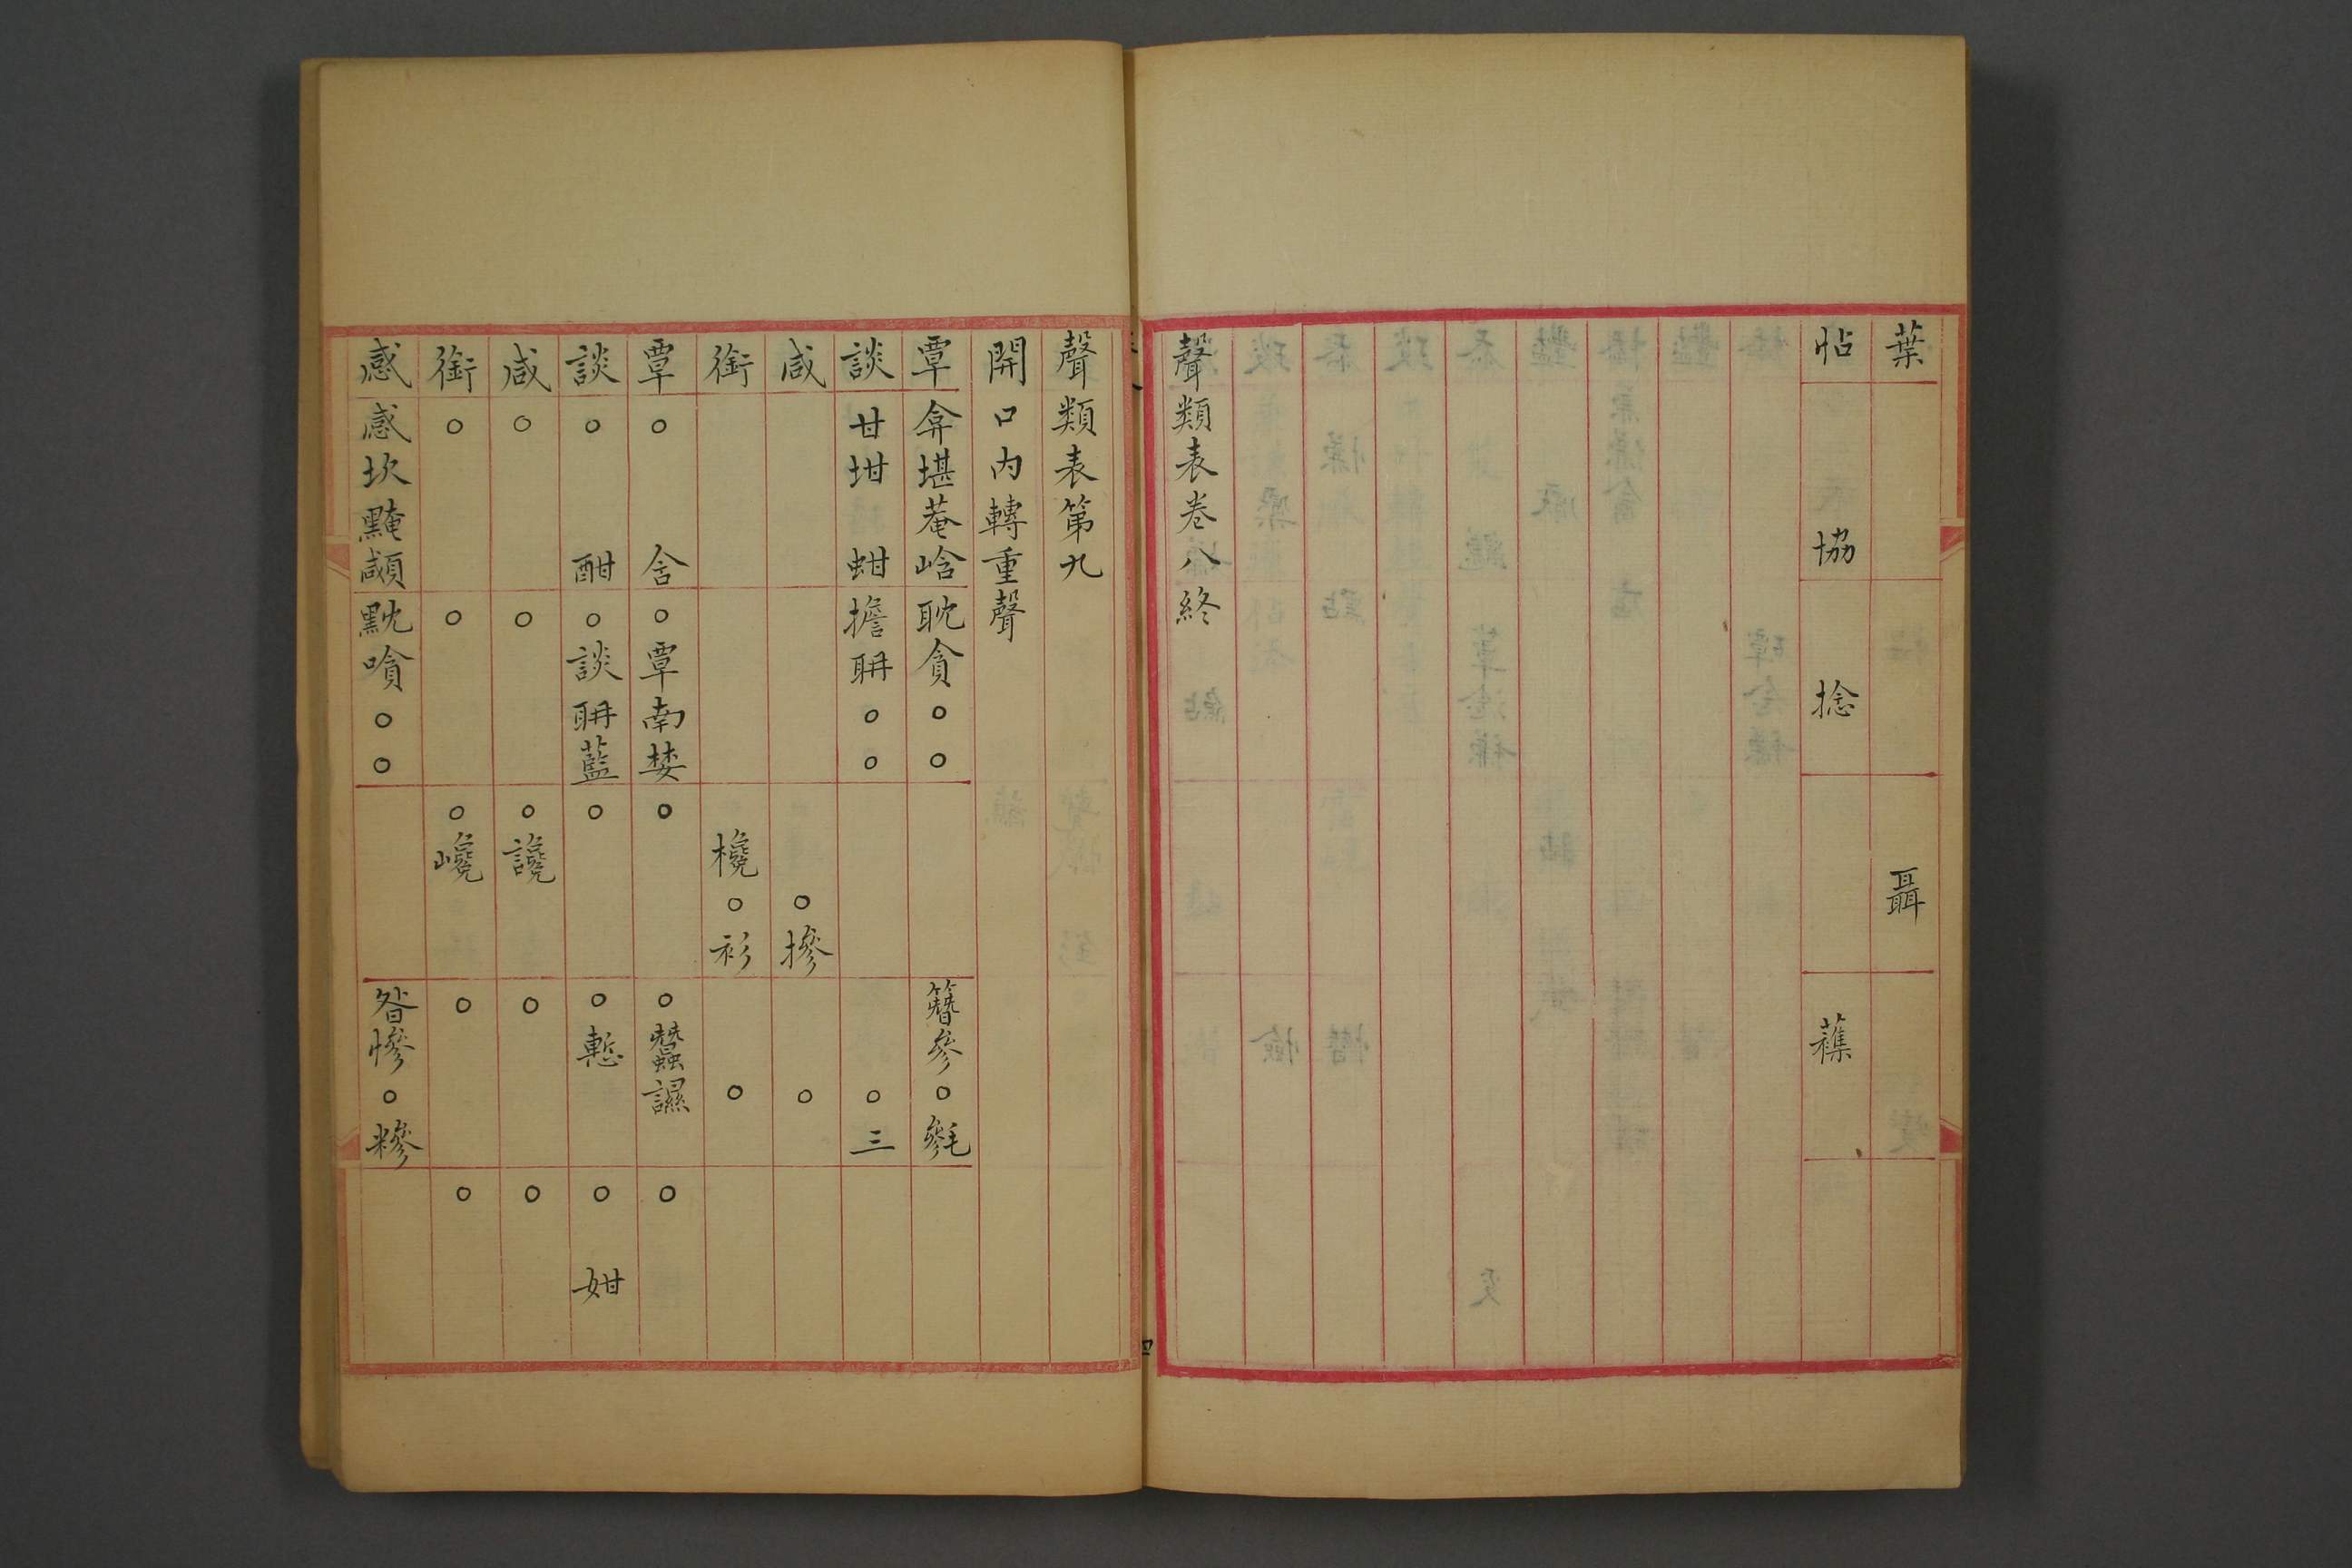 葉 聶
帖 協 捻 蘸
聲類表卷八終
聲類表第九
開口內轉重聲
覃 弇堪菴峆 耽貪○○ 簪參○毿
談 甘坩 蚶 擔聃○○ ○三
咸 ○摻 ○
銜 欃○衫 ○
覃 ○ 含 ○覃南婪 ○ ○蠶𧬈 ○
談 ○ 酣 ○談聃藍 ○ ○慙 ○ 姏
咸 ○ ○ ○讒 ○ ○
銜 ○ ○ ○巉 ○ ○
感 感坎黤顑 黕嗿○○ 昝慘○糝